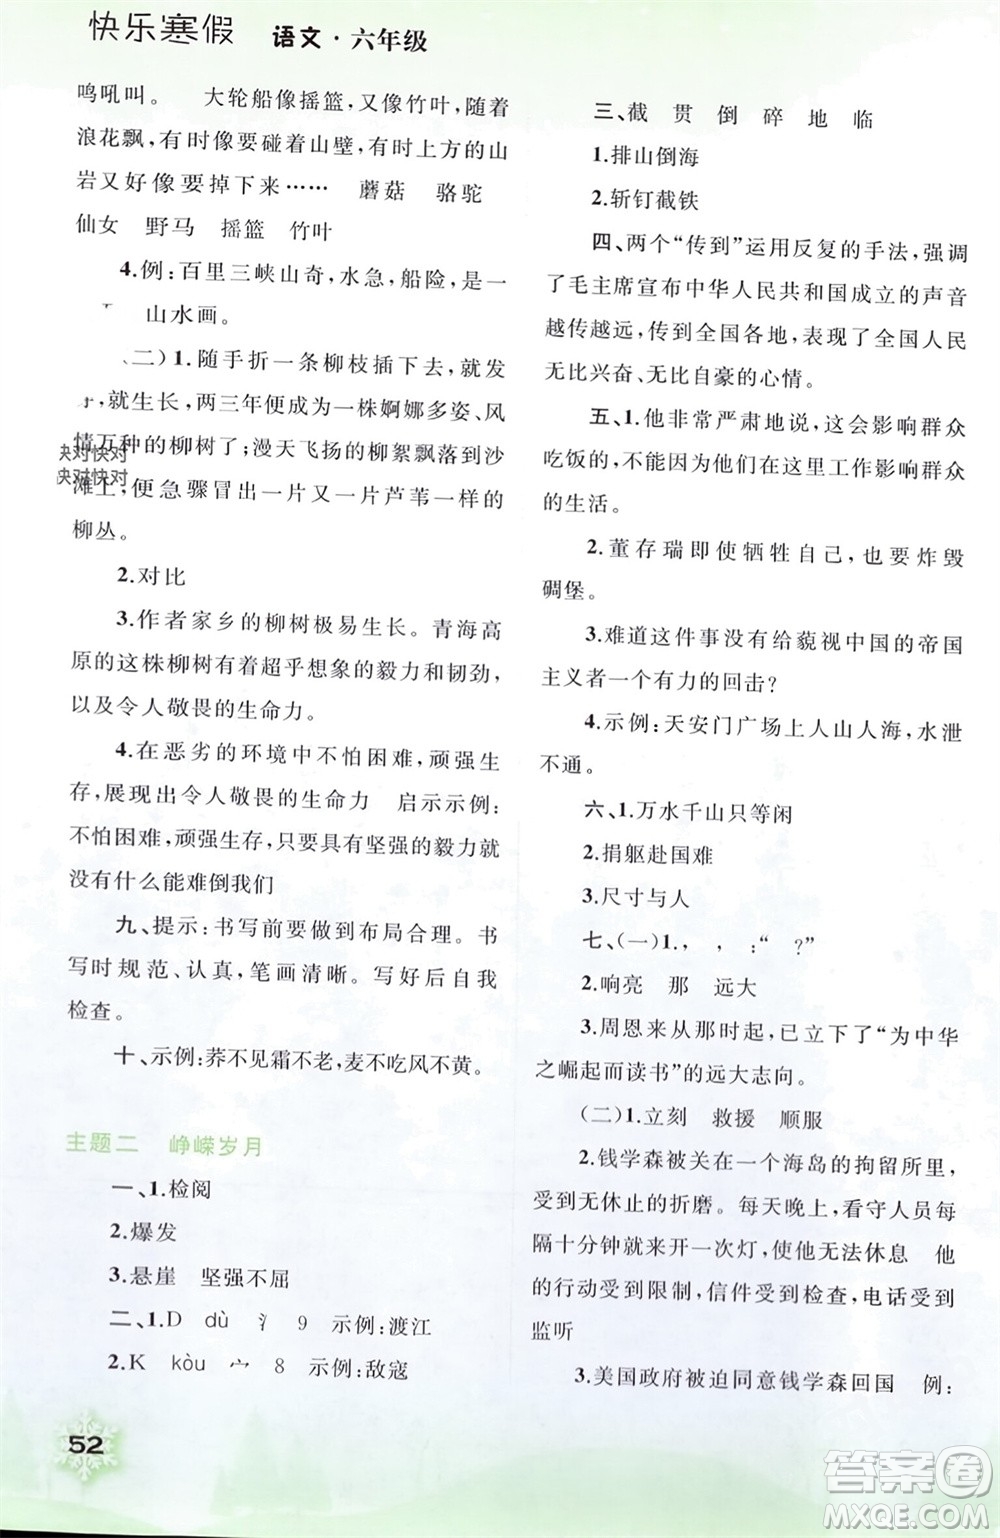 快乐寒假 语文·六年级
鸣吼叫。 大轮船像摇篮,又像竹叶,随着
浪花飘,有时像要碰着山壁,有时上方的山
岩又好像要掉下来…… 蘑菇 骆驼
仙女 野马 摇篮 竹叶
4.例:百里三峡山奇,水急,船险,是一
山水画。
二)1.随手折一条柳枝插下去,就发
,就生长,两三年便成为一株婀娜多姿、风
情万种的柳树了;漫天飞扬的柳絮飘落到沙
滩上,便急骤冒出一片又一片芦苇一样的
柳丛。
快对快对
快对快对
2.对比
3.作者家乡的柳树极易生长。青海高
原的这株柳树有着超乎想象的毅力和韧劲,
以及令人敬畏的生命力。
4.在恶劣的环境中不怕困难,顽强生
存,展现出令人敬畏的生命力 启示示例:
不怕困难,顽强生存,只要具有坚强的毅力就
没有什么能难倒我们
九、提示:书写前要做到布局合理。书
写时规范、认真,笔画清晰。写好后自我
检查。
十、示例:荞不见霜不老,麦不吃风不黄。
主题二 峥嵘岁月
一、1.检阅
2.爆发
3.悬崖 坚强不屈
二、1.D dù 氵 9 示例:渡江
2.K kòu 宀 8 示例:敌寇
52
三、截 贯 倒 碎 地 临
1.排山倒海
2.斩钉截铁
四、两个“传到”运用反复的手法,强调
了毛主席宣布中华人民共和国成立的声音
越传越远,传到全国各地,表现了全国人民
无比兴奋、无比自豪的心情。
五、1.他非常严肃地说,这会影响群众
吃饭的,不能因为他们在这里工作影响群众
的生活。
2.董存瑞即使牺牲自己,也要炸毁
碉堡。
3.难道这件事没有给藐视中国的帝国
主义者一个有力的回击?
4.示例:天安门广场上人山人海,水泄
不通。
六、1.万水千山只等闲
2.捐躯赴国难
3.尺寸与人
七、(一)1., , :“ ?”
2.响亮 那 远大
3.周恩来从那时起,已立下了“为中华
之崛起而读书”的远大志向。
(二)1.立刻 救援 顺服
2.钱学森被关在一个海岛的拘留所里,
受到无休止的折磨。每天晚上,看守人员每
隔十分钟就来开一次灯,使他无法休息 他
的行动受到限制,信件受到检查,电话受到
监听
3.美国政府被迫同意钱学森回国 例:
答案圈
MXQE.COM